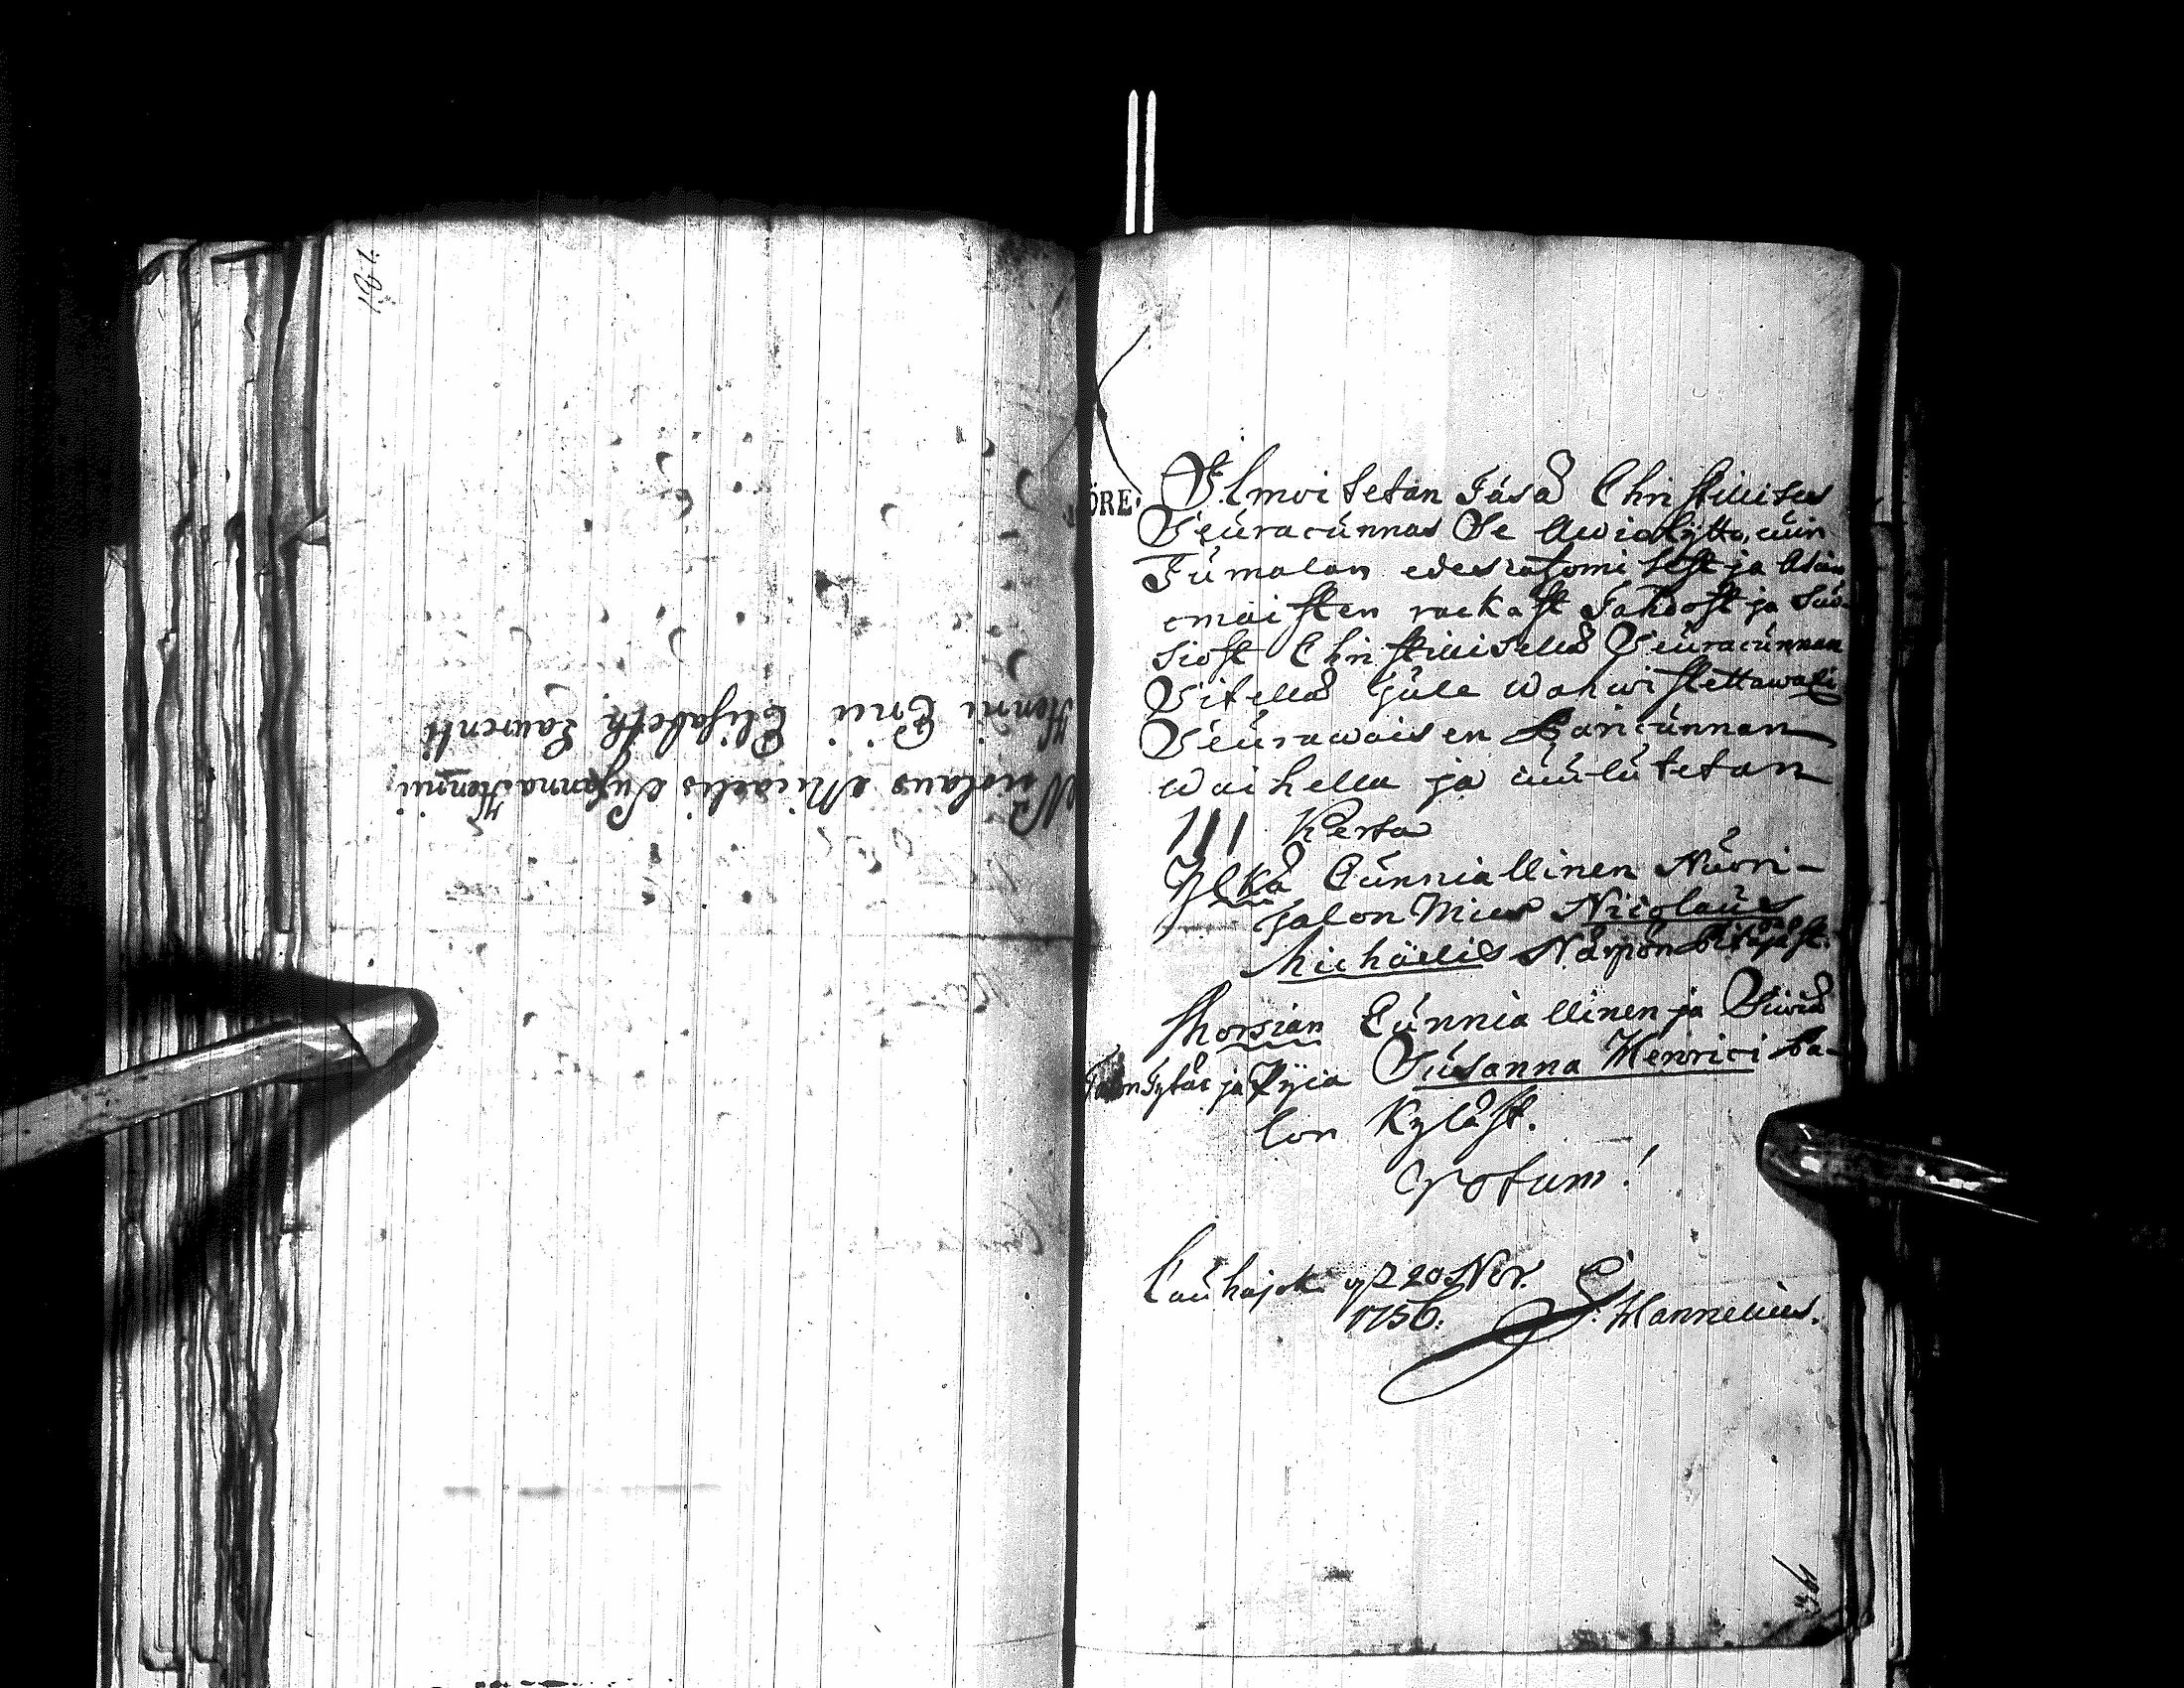 191
Nicolaus Micaelis Susanna Henrici
Henrici Erici Elisabeth Laurenti
ÖRE.
Ilmoitetan Täsä Christilises
Seuracunnas Se Awiokytto, cuin
Jumalan edescatzomisest ja Asian
omaisten rackast Tahdost ja Suo-
siost Christilisellä Seuracunnan
Sitellä Jule wahwistettawaxi
Seurawaisen Pariscunnan
waihella ja cuulutetan
III Kerta
Ylkä Cunniallinen Nuori-
Talon Mies Nicolaus
Michaelis Närpön Pitäjäst.
Morsian Cunniallinen ja Siwiä
Talon Tytär ja Pijca Susanna Henrici Pa-
lon Kyläst.
Votum!
Cauhajok. d. 20 Nov.
1756. S. Hannelius.